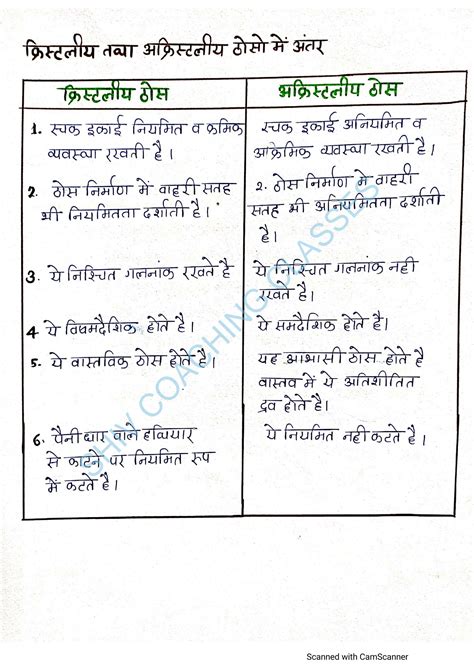 क्रिस्टलीय तथा अक्रिस्टलीय ठोसो में अंतर
क्रिस्टलीय ठोस
1. रचक इकाई नियमित व क्रमिक
व्यवस्था रखती है।
2. ठोस निर्माण में वाहरी सतह
भी नियमितता दर्शाती है।
3. ये निश्चित गलनांक रखते है
4 ये विषमदैशिक होते है।
5. ये वास्तविक ठोस होते है।
6. पैनी धार वाले हथियार
से काटने पर नियमित रूप
में कटते है।
अक्रिस्टलीय ठोस
रचक इकाई अनियमित व
आक्रमिक व्यवस्था रखती है।
2. ठोस निर्माण मे वाहरी
सतह भी अनियमितता दर्शाती
है।
ये निश्चित गलनांक नही
रखते है।
ये समदैशिक होते है।
यह आभासी ठोस होते है
वास्तव में ये अतिशीतित
द्रव होते है।
ये नियमित नही कटते है।
SHIV COACHING CLASSES
Scanned with CamScanner